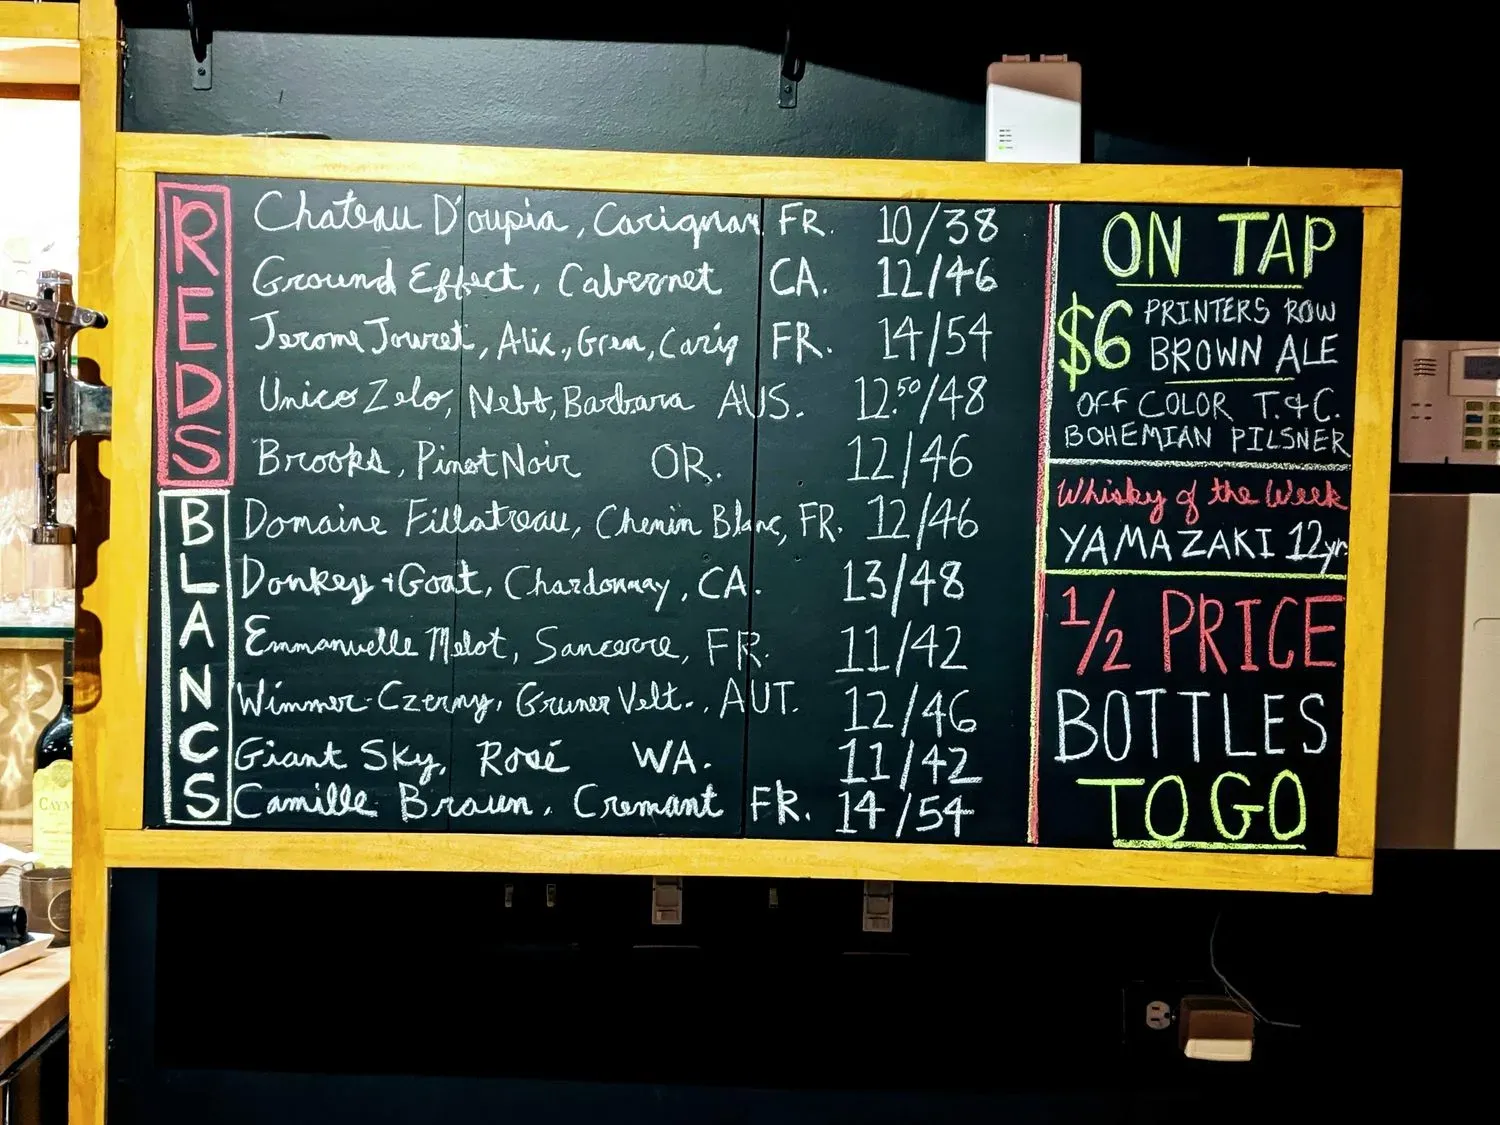 REDS
Chateau D'oupia, Carignan FR. 10/38
Ground Effect, Cabernet CA. 12/46
Jerome Jouret, Alic., Gren, Carig FR. 14/54
Unico Zelo, Nebb, Barbara AUS. 12.50/48
Brooks, Pinot Noir OR. 12/46
BLANCS
Domaine Fillatreau, Chenin Blanc, FR. 12/46
Donkey + Goat, Chardonnay, CA. 13/48
Emmanuelle Melot, Sancerre, FR. 11/42
Wimmer-Czerny, Gruner Velt., AUT. 12/46
Giant Sky, Rosé WA. 11/42
Camille Braun, Cremant FR. 14/54
ON TAP
$6 PRINTERS ROW
BROWN ALE
OFF COLOR T.&C.
BOHEMIAN PILSNER
Whisky of the Week
YAMAZAKI 12yr.
1/2 PRICE
BOTTLES
TO GO